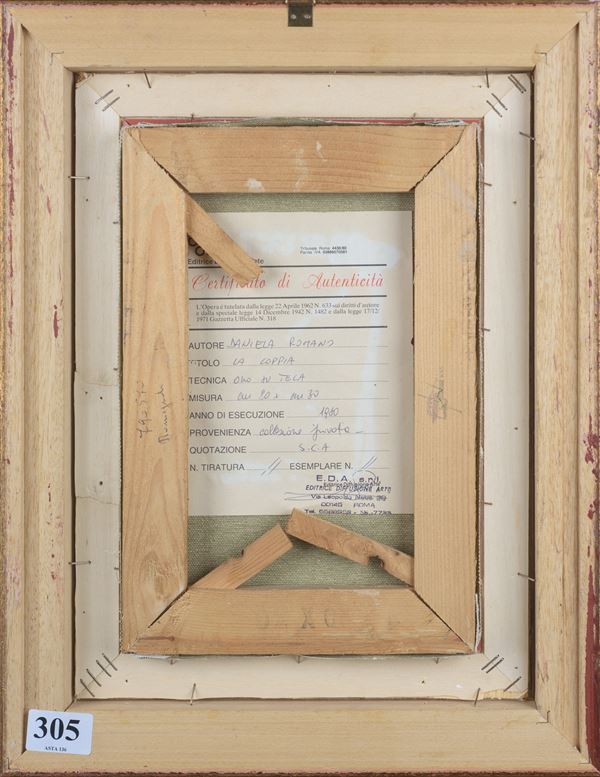 Tribunale Roma 4430/80
Partita IVA
Editrice
Certificato di Autenticità
L'Opera è tutelata dalla legge 22 Aprile 1962 N. 633 sui diritti d'autore
e dalla speciale legge 14 Dicembre 1942 N. 1482 e dalla legge 17/12/
1971 Gazzetta Ufficiale N. 318
AUTORE DANIELA ROMANO
TITOLO LA COPPIA
TECNICA OLIO SU TELA
MISURA cm 20 x cm 30
ANNO DI ESECUZIONE 1980
PROVENIENZA collezione privata
QUOTAZIONE S.C.A
N. TIRATURA // ESEMPLARE N. //
E.D.A. s.r.l.
EDITRICE DIFFUSIONE ARTE
Via Leopoldo
00145 ROMA
Tel.
305
ASTA 116